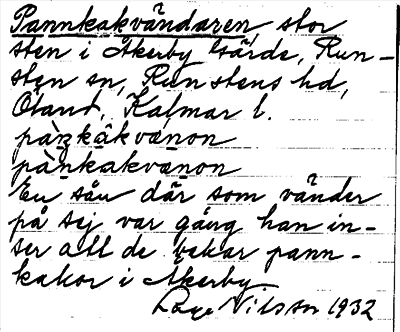 Pannkakvändaren, stor
sten i Åkerby gärde, Run-
sten sn, Runstens hd,
Öland, Kalmar l.
pànkakvanon
En sån där som vänder
på sej var gång han in-
ser att de bakar pann-
kakor i Åkerby
Nilsson 1932